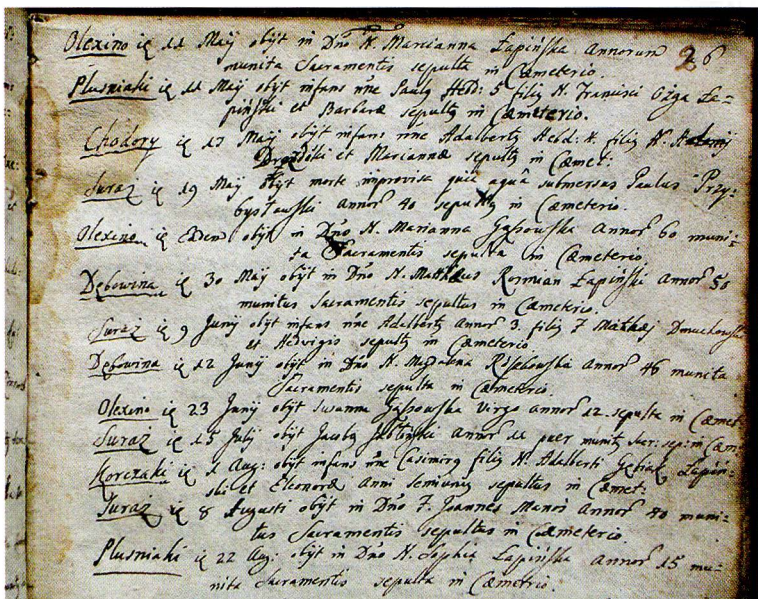 Olexino ię 11 Maij obijt in Dno N. Marianna Łapińska Annorum 26
munita Sacramentis sepulta in Cæmeterio.
Plusniaki ię 11 Maij obijt infans nne Paulg Hebd: 5 filig N. Francisci Ożga Ła=
piński et Barbaræ sepultg in Cæmeterio.
Chodory ię 17 Maij obijt infans nne Adalbertg Hebd: 4. filig N.
et Mariannæ sepultg in Cæmet:
Suraż ię 19 Maij obijt morte improvisa quia aquâ submersus Paulus Przy=
byszański Annor 40 sepultg in Cæmeterio.
Olexino ię Eâdem obijt in Dno N. Marianna Gąsowska Annor 60 muni=
ta Sacramentis sepulta in Cæmeterio
Dębowina ię 30 Maij obijt in Dno N. Matthæus Łapiński Annor 50
munitus Sacramentis sepultus in Cæmeterio.
Suraż ię 9 Junij obijt infans nne Adalbertg Annor 3. filig F. Mathæj Dmuchowski
et Hedvigis sepultg in Cæmeterio
Dębowina ię 12 Junij obijt in Dno N. Magdanna Annor 46 munita
Sacramentis sepulta in Cæmeterio.
Olexino ię 23 Junij obijt Susanna Gąsowska Virgo annor 12. sepulta in Cæmet
Suraż ię 15 Julij obijt Jacobg annor 11 puer munitg Sacr: sep: in Cæm
Korczaki ię 1 Aug: obijt infans nne Casimirg filig N. Adalberti Łapiń=
ski et Eleonoræ Anni semiunig sepultus in Cæmet:
Suraż ię 8 Augusti obijt in Dno F. Joannes Manoś Annor 40 muni=
tus Sacramentis sepultus in Cæmeterio.
Plusniaki ię 22 Aug: obijt in Dno N. Sophia Łapińska Annor 15 mu=
nita Sacramentis sepulta in Cæmetrio.